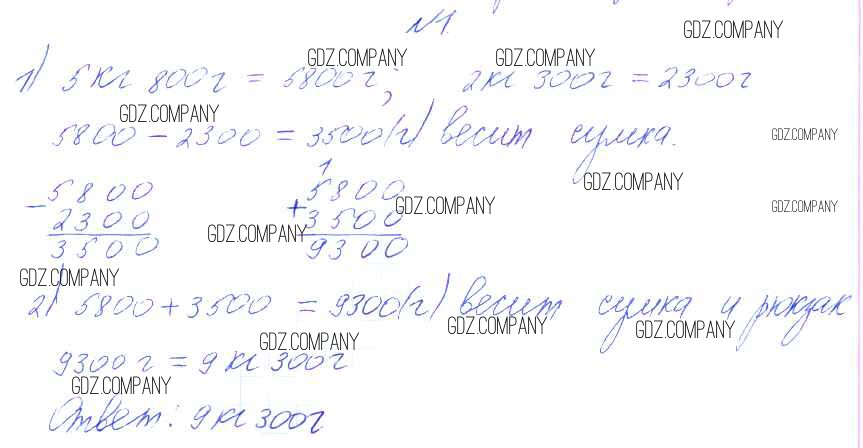 №1.
GDZ.COMPANY
GDZ.COMPANY GDZ.COMPANY
1) 5 кг 800 г = 5800 г; 2 кг 300 г = 2300 г
GDZ.COMPANY
5800 - 2300 = 3500 (г) весит сумка.
GDZ.COMPANY
1
- 5800 + 5800
GDZ.COMPANY
GDZ.COMPANY GDZ.COMPANY
2300 3500
GDZ.COMPANY
3500 9300
GDZ.COMPANY
2) 5800 + 3500 = 9300 (г) весит сумка и рюкзак
GDZ.COMPANY GDZ.COMPANY GDZ.COMPANY
9300 г = 9 кг 300 г
GDZ.COMPANY
Ответ: 9 кг 300 г